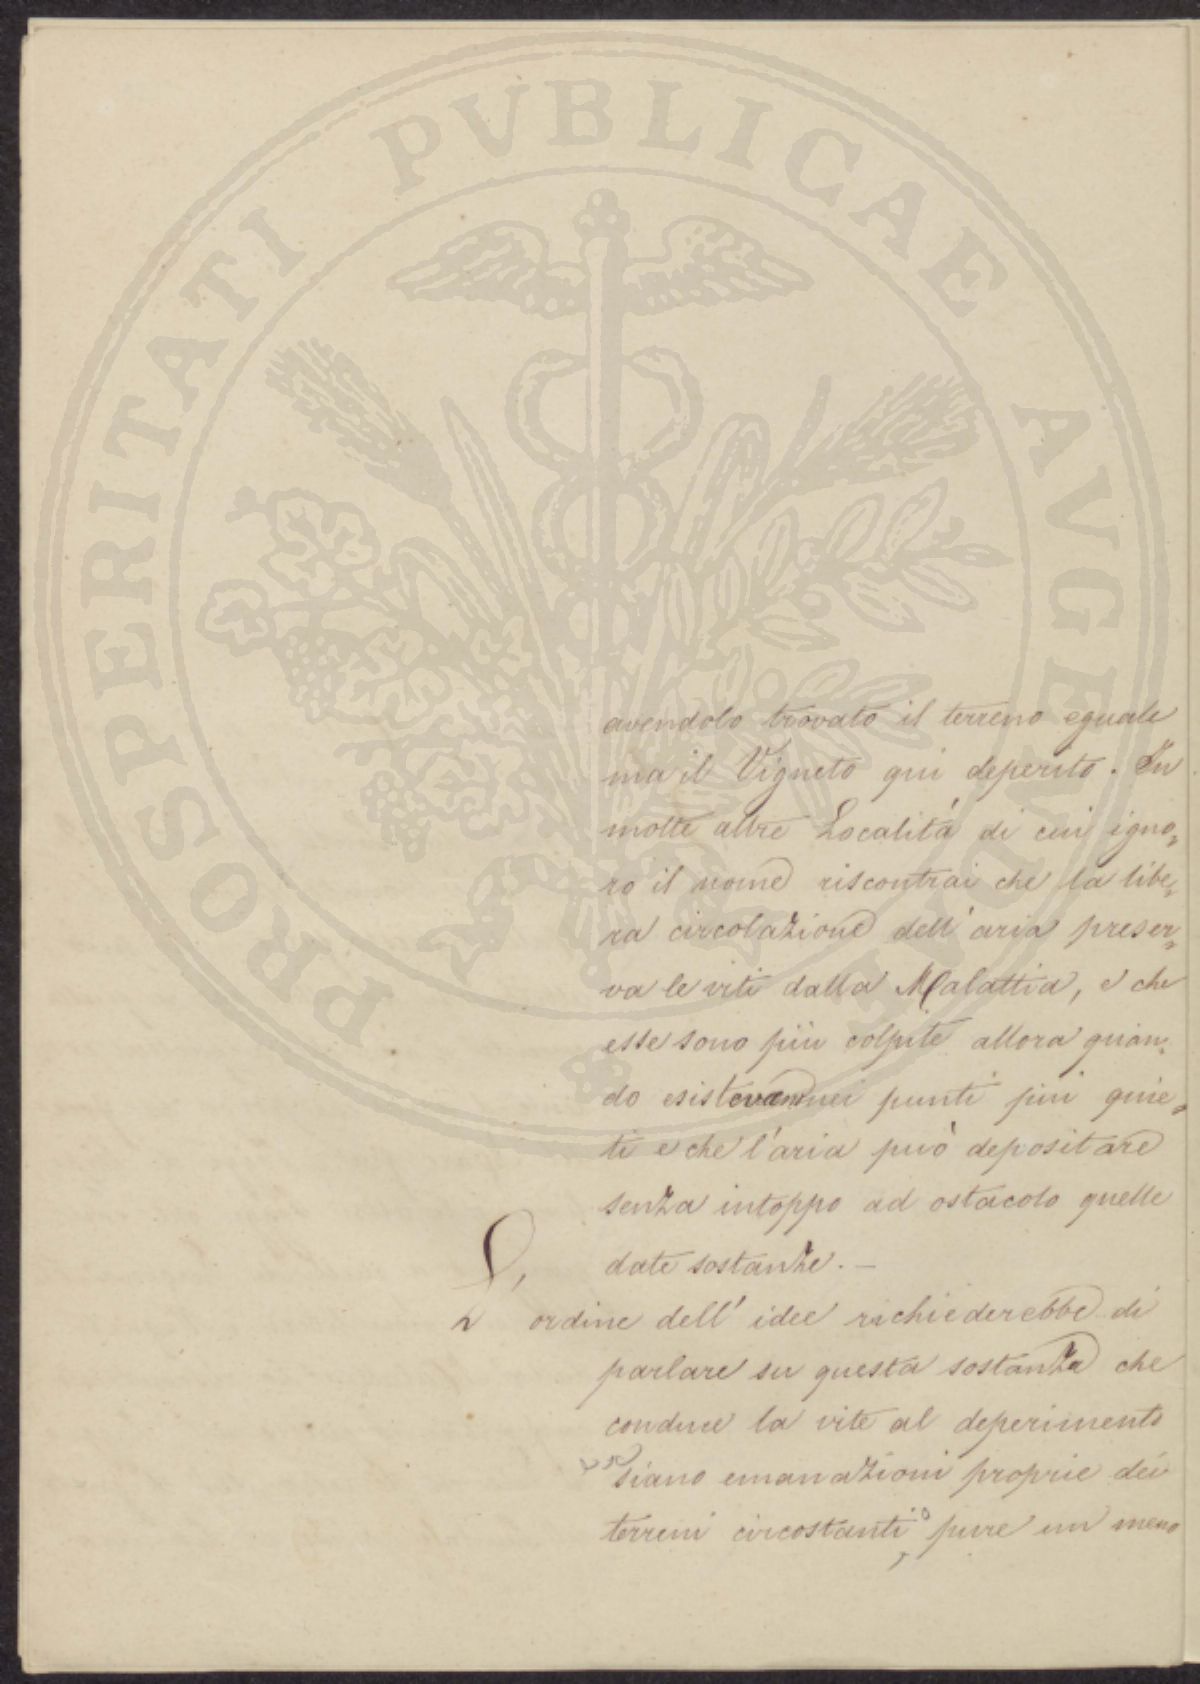 PROSPERITATI PUBLICAE AVGENDAE
avendolo trovato il terreno eguale
ma il Vigneto qui deperito. In
molte altre Località di cui igno=
ro il nome riscontrai che la libe=
ra circolazione dell'aria preser=
va le viti dalla Malattia, e che
esse sono più colpite allora quan=
do esistevano nei punti più quie=
ti e che l'aria può depositare
senza intoppo ad ostacolo quelle
date sostanze. —
L'ordine dell'idee richiederebbe di
parlare su questa sostanza che
conduce la vite al deperimento
se siano emanazioni proprie dei
terreni circostanti, o pure un meno